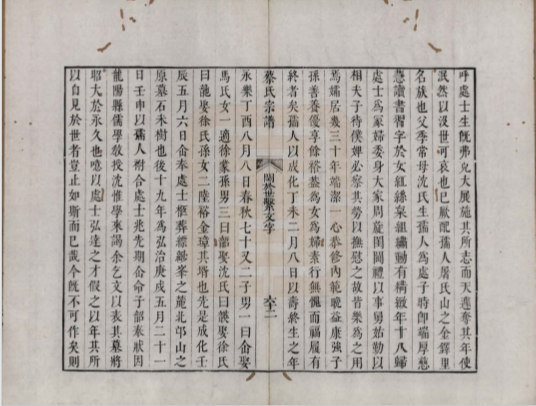 呼處士生既弗克大展施其所志而天遽奪其年使
泯然以沒世可哀也已厥配孺人居氏山之金鐸里
名族也父季常母沈氏生孺人為處子時即端厚慈
慧讀書習字於女紅絲枲組繡動有楷緻年十八歸
處士為冡婦委身大家周旋閨閫禮以事舅姑勤以
相夫子待僕婢必察其勞以撫慰之故皆樂為之用
為孀居幾三十年端潔一心恭修內範晚益康強子
孫善養優享餘裕蓋為女為婦素行無愧而福履有
終者矣孺人以成化丁未二月八日以壽終生之年
永樂丁酉八月八日春秋七十又二子男一曰侖娶
蔡氏宗譜
閥於世繫文字
六十二
馬氏女一適徐蒙孫男三曰韶娶沈氏曰頀娶徐氏
曰龍娶徐氏孫女二陸裕金璋其壻也先是成化壬
辰五月六日侖奉處士柩葬縹緲峯之麓北邙山之
原墓石未樹也後十九年為弘治庚戌五月二十一
日壬申以孺人祔合處士兆先期侖命子韶奉狀因
龍陽縣儒學教授沈惟學來謁余乞文以表其墓將
昭大於永久也噫以處士弘達之才假之以年其所
以自見於世者豈止如斯而已哉今既不可作矣則